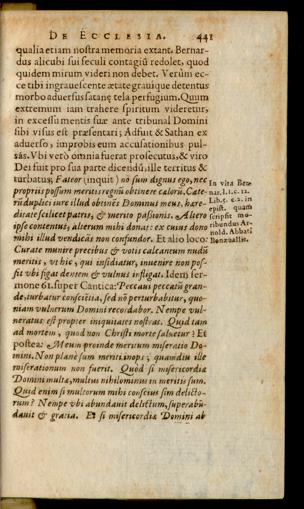 DE ECCLESIA. 441
qualia etiam nostra memoria extant. Bernar-
dus alicubi sui seculi contagiū redolet, quod
quidem mirum videri non debet. Verùm ec-
ce tibi ingrauescente ætate grauique detentus
morbo aduersus satanę tela perfugium. Quum
extremum iam trahere spiritum videretur,
in excessu mentis suæ ante tribunal Domini
sibi visus est præsentari; Adfuit & Sathan ex
aduerso, improbis eum accusationibus pul-
sās. Vbi verò omnia fuerat prosecutus, & viro
Dei fuit pro sua parte dicendū, ille territus &
turbatus, Fateor (inquit) nō sum dignus ego, nec
propriis possum meritis regnū obtinere cælorū. Cate-
rū duplici iure illud obtinēs Dominus meus, hære-
ditate scilicet patris, & merito passionis. Altero
ipse contentus, alterum mihi donat: ex cuius dono
mihi illud vendicās non confundor. Et alio loco:
Curate munire precibus & votis calcaneum nudū
meritis, vt hic, qui insidiatur, inuenire non pos-
sit vbi figat dentem & vulnus infligat. Idem ser-
mone 61. super Cantica: Peccaui peccatū gran-
de, turbatur conscientia, sed nō perturbabitur, quo-
niam vulnerum Domini recordabor. Nempe vul-
neratus est propter iniquitates nostras. Quid tam
ad mortem, quod non Christi morte saluetur? Et
postea: Meum proinde meritum miseratio Do-
mini. Non planè sum meriti inops, quamdiu ille
miserationum non fuerit. Quod si misericordiæ
Domini multæ, multus nihilominus in meritis sum.
Quid enim si multorum mihi conscius sim delicto-
rum? Nempe vbi abundauit delictum, superabū-
dauit & gratia. Et si misericordiæ Domini ab
In vita Ber-
nar. l. 1. c. 12.
Lib. 5. c. 2. in
epist. quam
scripsit mo-
ribundus Ar-
nold. Abbati
Bonæuallis.